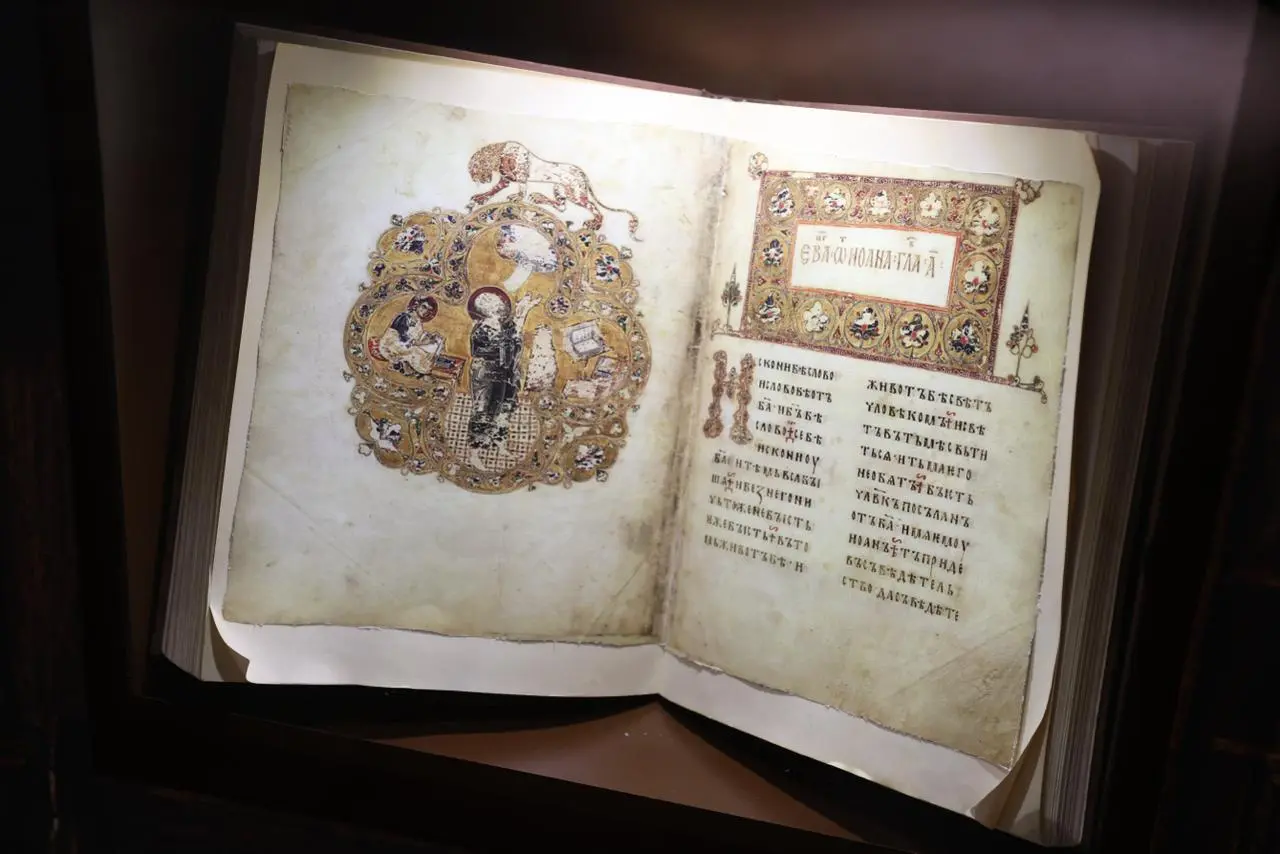 ЕВА · Ѡ ИОАНА · ГЛА · А҃ :
ИСКОНИ БѢ СЛОВО
И СЛОВО БѢ ОТЪ
Б҃А · И Б҃Ъ БѢ
СЛОВО СЕ БѢ
ИСКОНИ ОУ
Б҃А · И ТѢМЬ ВЬСѦ БꙐ
ШѦ И БЕЗ НЕГО НИ
ЧЬТОЖЕ НЕ БꙐСТЬ
ѤЖЕ БꙐСТЬ ВЪ ТО
МЬ ЖИВОТЪ БѢ · И
ЖИВОТЪ БѢ СВѢТЪ
ЧЛОВѢКОМЪ И СВѢ
ТЪ ВЪ ТЬМѢ СВЬТИ
ТЬСѦ · И ТЬМА ѤГО
НЕ ОБѦТЪ БꙐСТЬ
ЧЛ҃ВКЪ ПОСЪЛАНЪ
ОТЪ Б҃А · ИМѦ ѤМОУ
ИОАНЪ ТЪ ПРИДЕ
ВЪ СЪВѢДѢТЕЛЬ
СТВО · ДА СЪВѢДѢТЕ